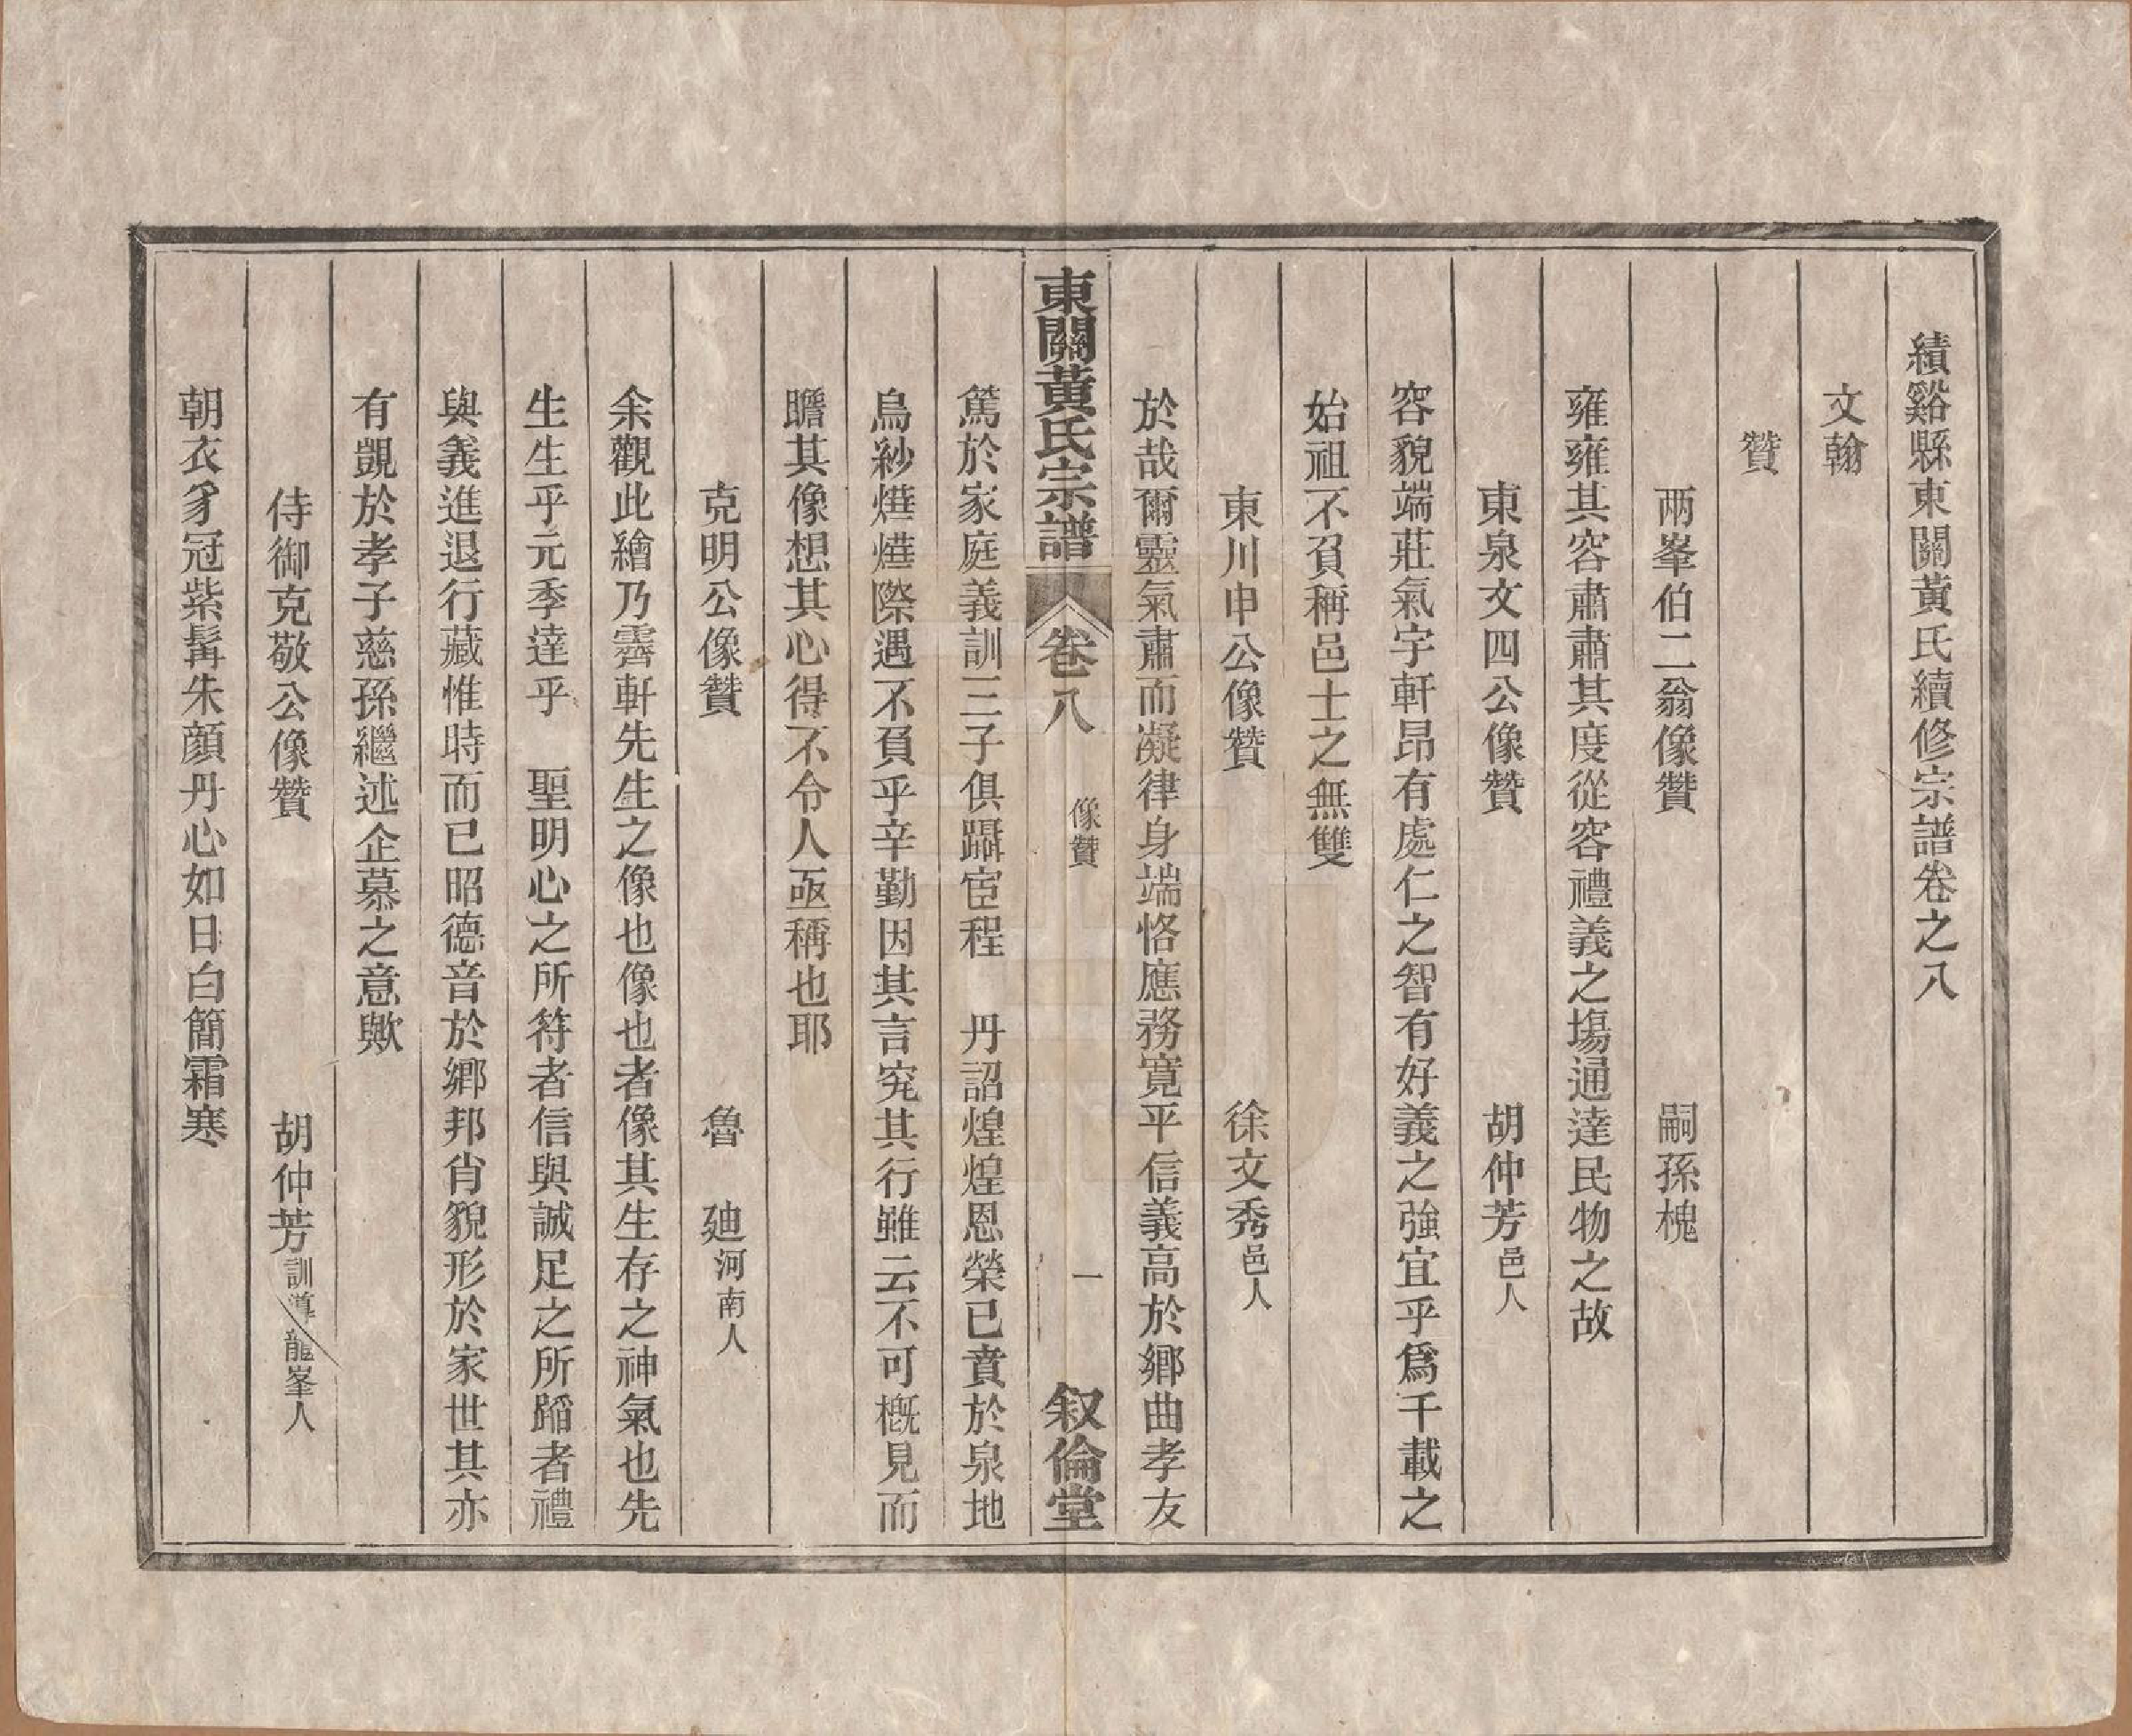 績谿縣東關黃氏續修宗譜卷之八
文翰
贊
兩峯伯二翁像贊 嗣孫槐
雍雍其容肅肅其度從容禮義之塲通達民物之故
東泉文四公像贊 胡仲芳邑人
容貌端莊氣宇軒昂有處仁之智有好義之強宜乎爲千載之
始祖不負稱邑士之無雙
東川申公像贊 徐文秀邑人
於哉爾靈氣肅而凝律身端恪應務寬平信義高於鄉曲孝友
東關黃氏宗譜 卷八 像贊 一 叙倫堂
篤於家庭義訓三子俱躡宦程 丹詔煌煌恩榮已賁於泉地
烏紗燁燁際遇不負乎辛勤因其言究其行雖云不可槪見而
瞻其像想其心得不令人亟稱也耶
克明公像贊 魯 廸河南人
余觀此繪乃霽軒先生之像也像也者像其生存之神氣也先
生生乎元季達乎 聖明心之所符者信與誠足之所蹈者禮
與義進退行藏惟時而已昭德音於鄉邦肖貌形於家世其亦
有覬於孝子慈孫繼述企慕之意歟
侍御克敬公像贊 胡仲芳訓導龍峯人
朝衣豸冠紫髯朱顔丹心如日白簡霜寒